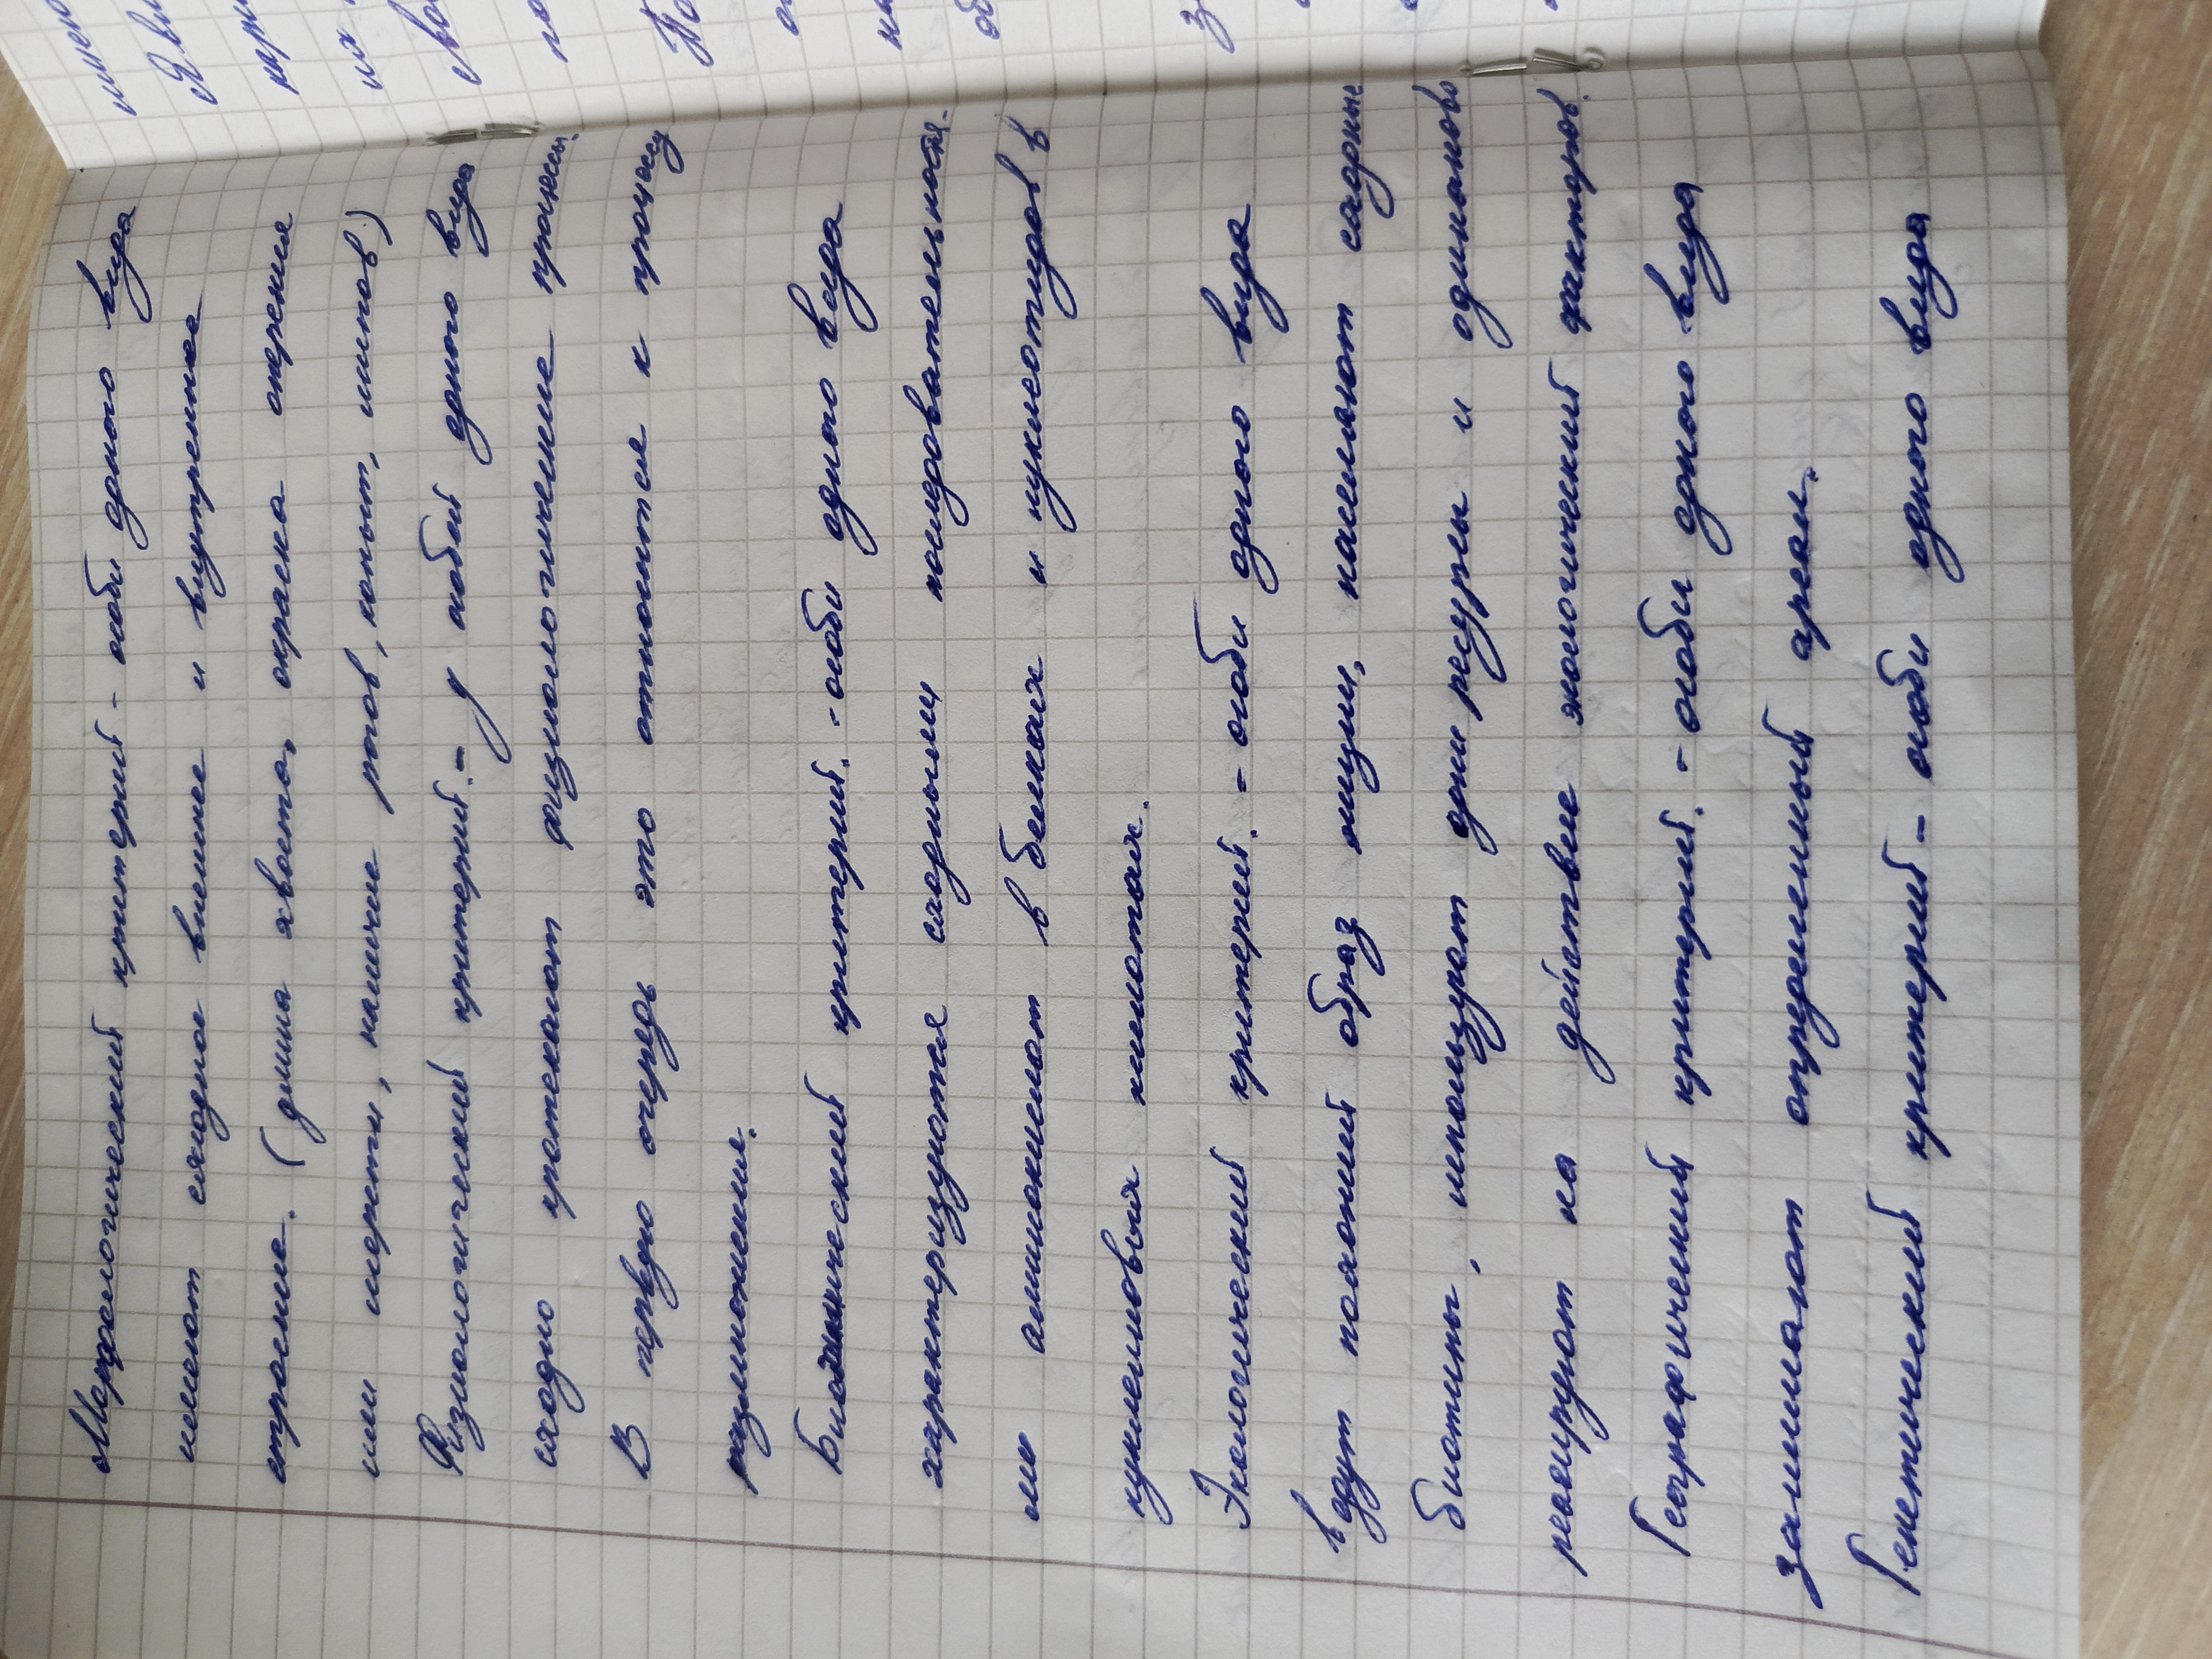 Морфологический критерий - особи одного вида
имеют сходное внешнее и внутреннее
строение. (длина хвоста, окраска оперения
или шерсти, наличие рогов, копыт, шипов)
Физиологический критерий. - у особей одного вида
сходно протекают физиологические процессы.
В первую очередь это относится к процессу
размножения.
Биохимический критерий. - особи одного вида
характеризуются сходными последовательностя-
ми аминокислот в белках и нуклеотидов в
нуклеиновых кислотах.
Экологический критерий. - особи одного вида
ведут похожий образ жизни, населяют сходные
биотипы, используют одни ресурсы и одинаково
реагируют на действие экологический факторов.
Географический критерий. - особи одного вида
занимают определенный ареал.
Генетический критерий - особи одного вида